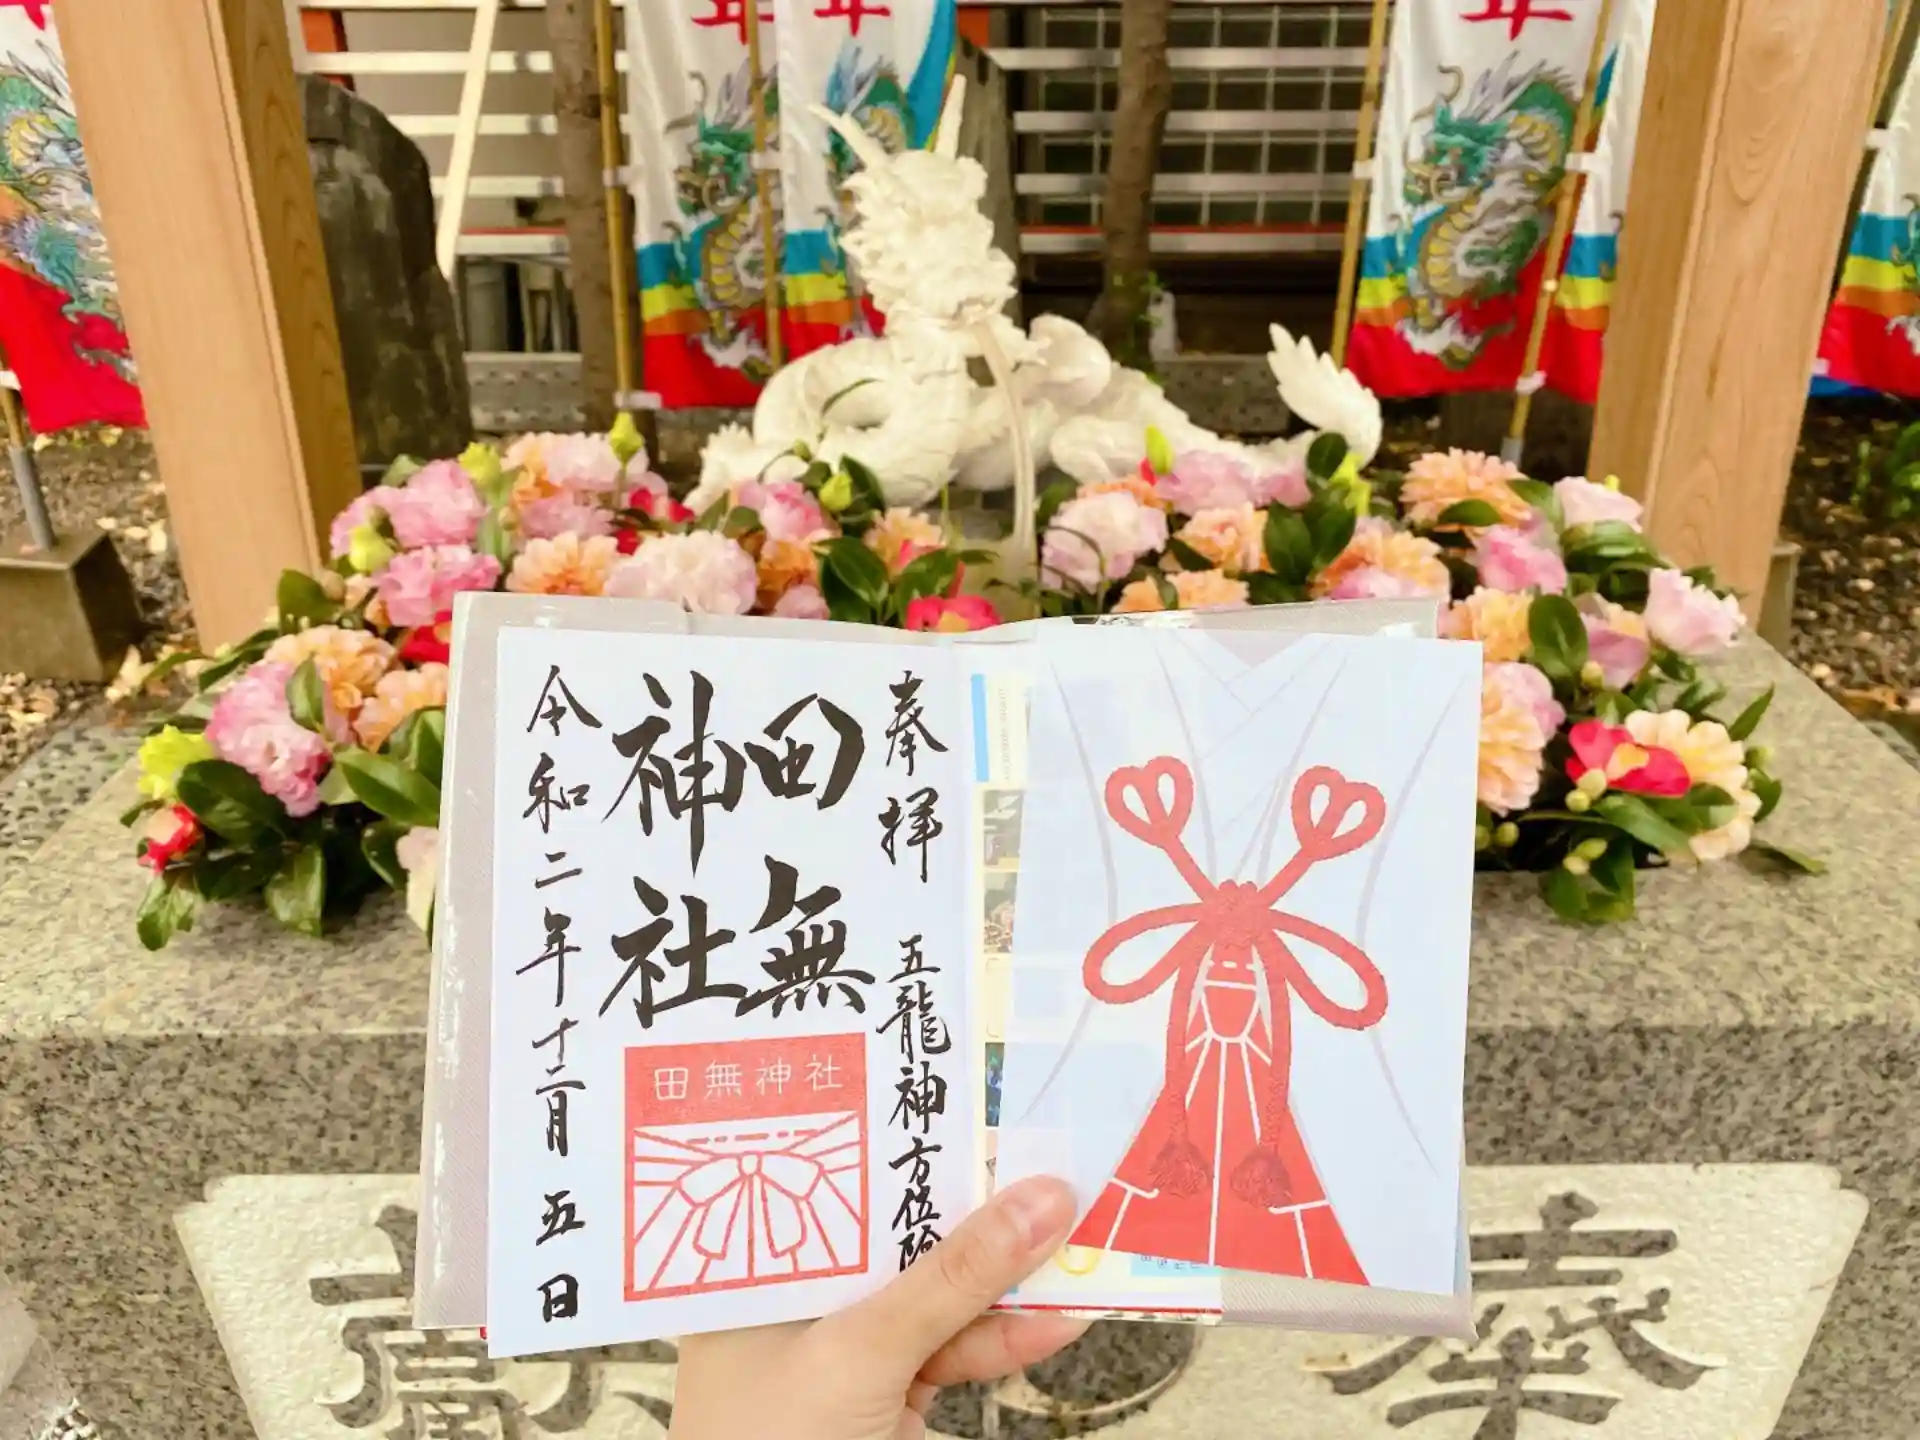 年
年
年
奉拝 五龍神方位除
田無
神社
田無神社
令和二年十二月五日
奉
獻